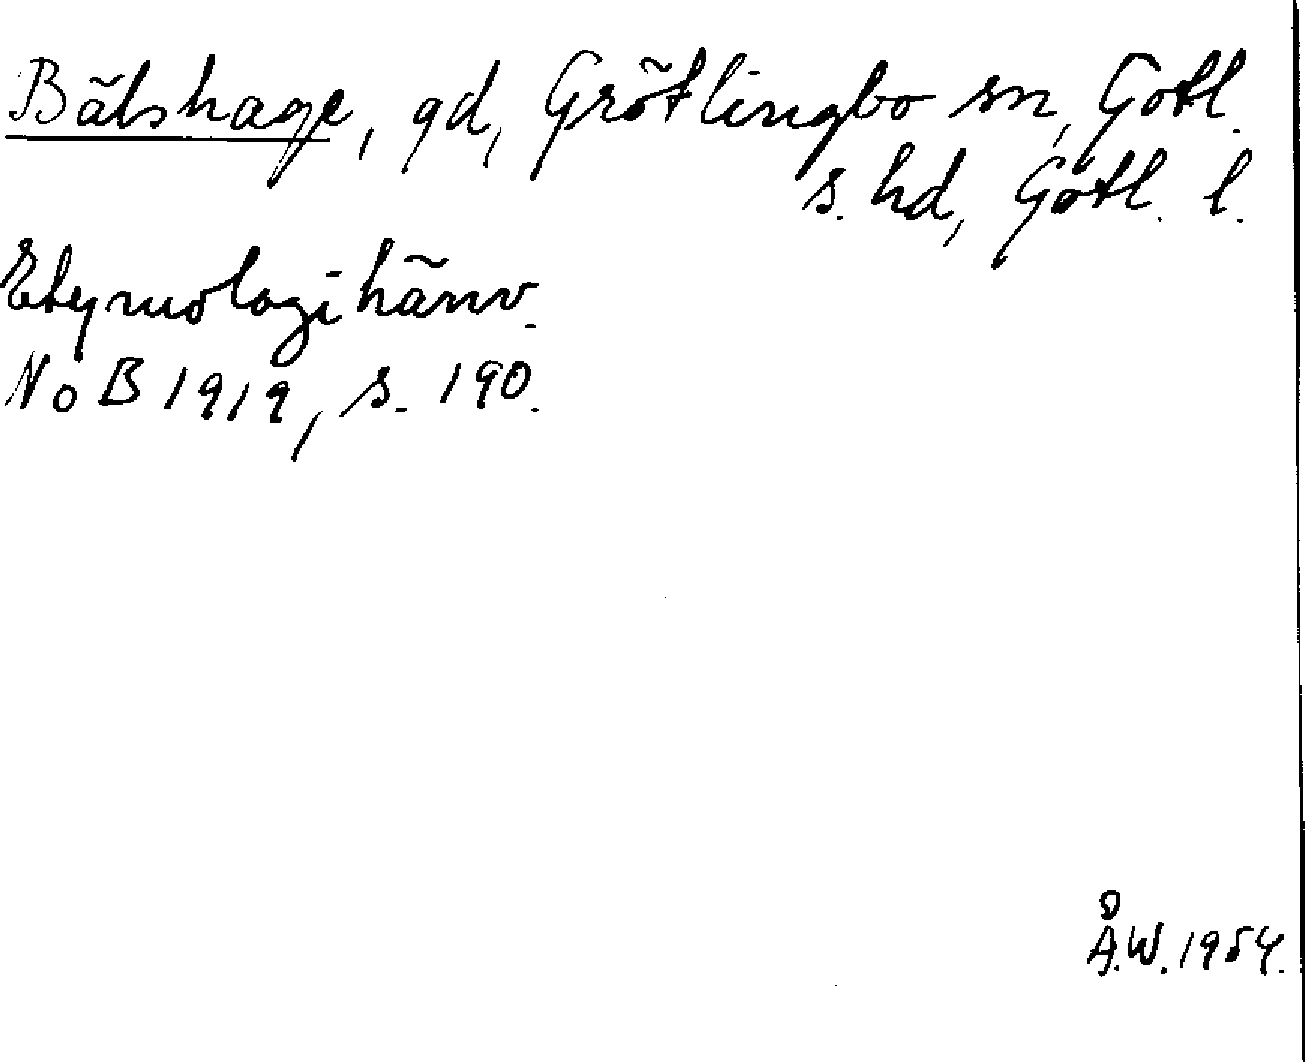 Bälshage, gd, Grötlingbo sn, Gotl.
s. hd, Gotl. l.
Etymologihänv.
NoB 1919, s. 190.
Å.W. 1954.